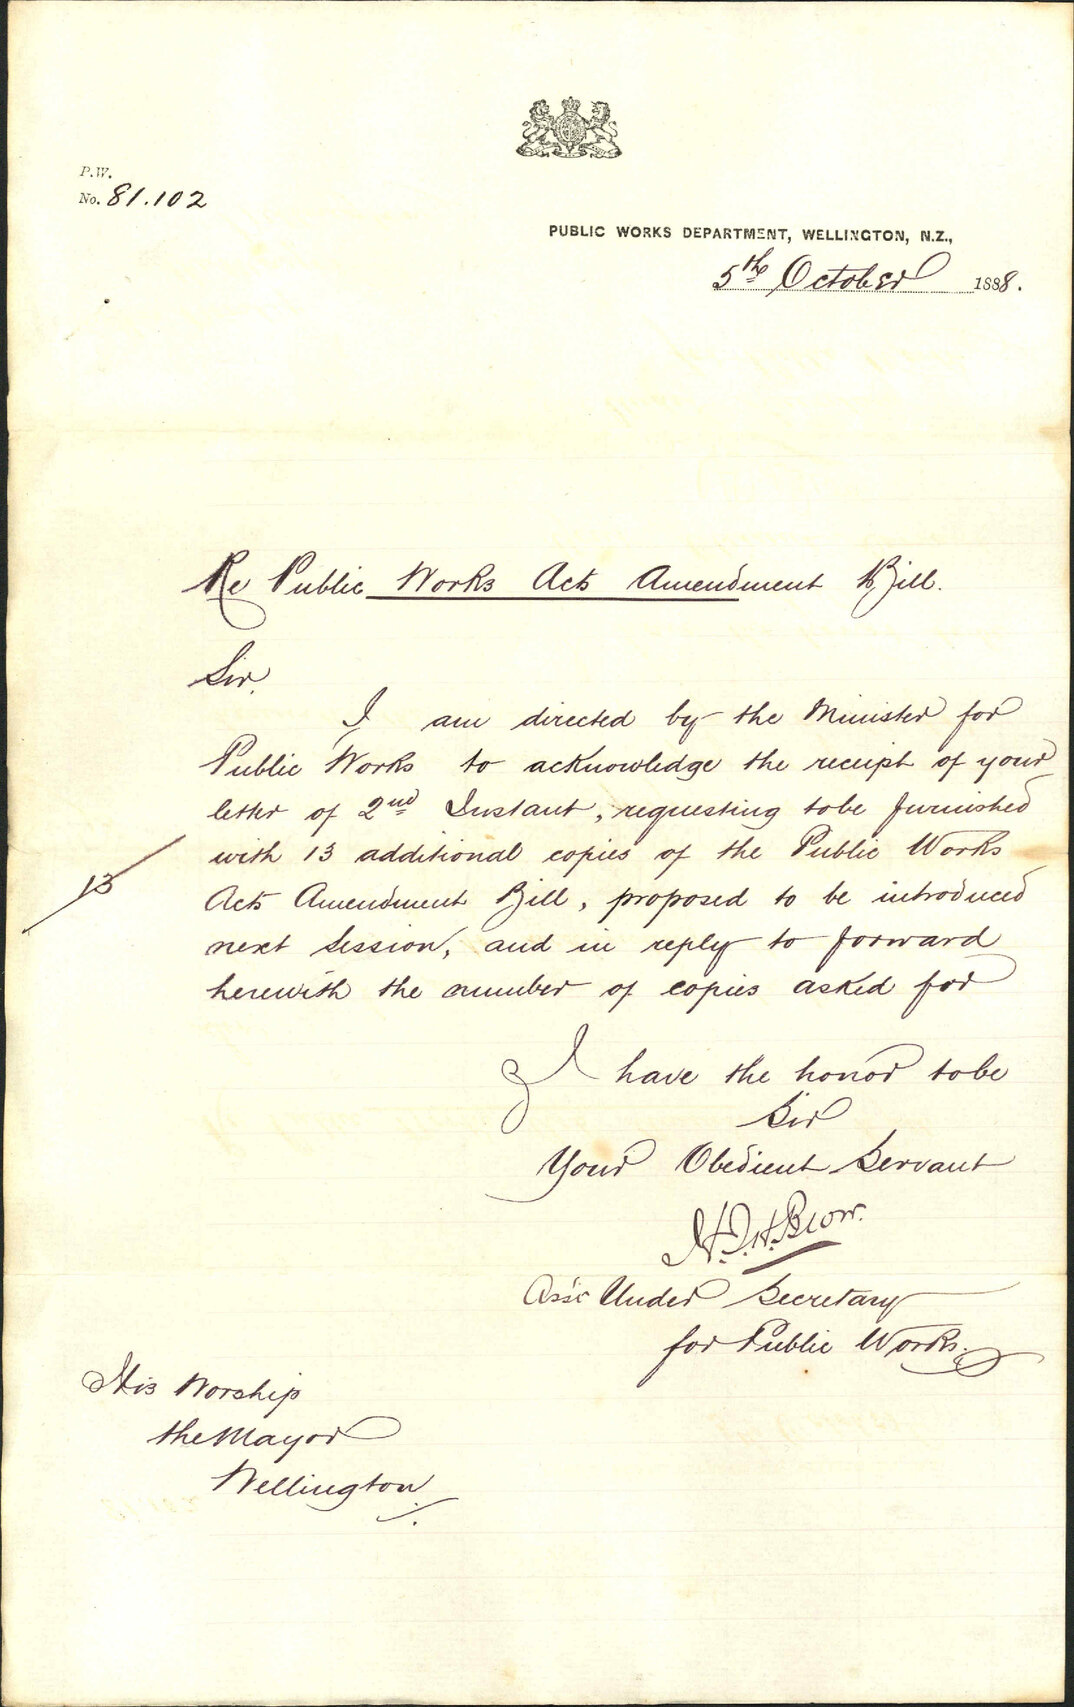 P.W.
No. 81.102
PUBLIC WORKS DEPARTMENT, WELLINGTON, N.Z.,
5th October 1888.
Re Public Works Acts Amendment Bill.
Sir,
I am directed by the Minister for
Public Works to acknowledge the receipt of your
letter of 2nd Instant, requesting tobe furnished
with 13 additional copies of the Public Works
13
Acts Amendment Bill, proposed to be introduced
next Session, and in reply to forward
herewith the number of copies asked for
I have the honor tobe
Sir
Your Obedient Servant
H.J.H. Blow.
Ass't Under Secretary
for Public Works.
His Worship
the Mayor
Wellington.